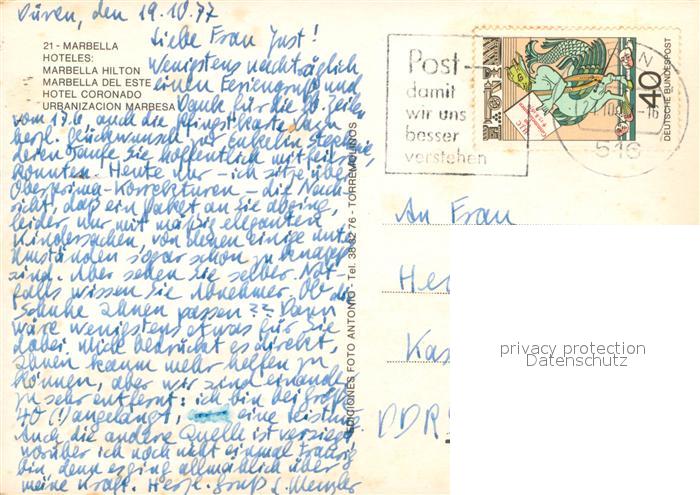 Düren, den 19.10.77
Liebe Frau Just!
21 - MARBELLA
HOTELES:
MARBELLA HILTON
MARBELLA DEL ESTE
HOTEL CORONADO
URBANIZACION MARBESA
Wenigstens nachträglich
einen Feriengruß und
Danke für die lb. Zeilen
vom 17.6. auch die Pfingstkarte. Dazu
herzl. Glückwunsch zur Enkelin Stephanie,
deren Taufe Sie hoffentlich mitfeiern
konnten. Heute nur – ich sitze über
Oberprima-Korrekturen – die Nach-
richt, daß ein Paket an Sie abging,
leider nur mit mäßig eleganten
Kindersachen, von denen einige unter
Umständen sogar schon zu knapp
sind. Aber sehen Sie selber. Not-
falls wissen Sie Abnehmer. Ob die
Schuhe Ihnen passen?? Dann
wäre wenigstens etwas für Sie
dabei. Mich bedrückt es direkt,
Ihnen kaum mehr helfen zu
können, aber wir sind einander
zu sehr entfernt: ich bin bei Größe
40 (!) angelangt, eine Leistung
Auch die andere Quelle ist versiegt,
worüber ich noch nicht einmal traurig
bin, denn es ging allmählich über
meine Kraft. Herzl. Gruß
EDICIONES FOTO ANTONIO - Tel. 38 32 76 - TORREMOLINOS
Post
damit
wir uns
besser
verstehen
516
40
DEUTSCHE BUNDESPOST
An Frau
DDR
privacy protection
Datenschutz